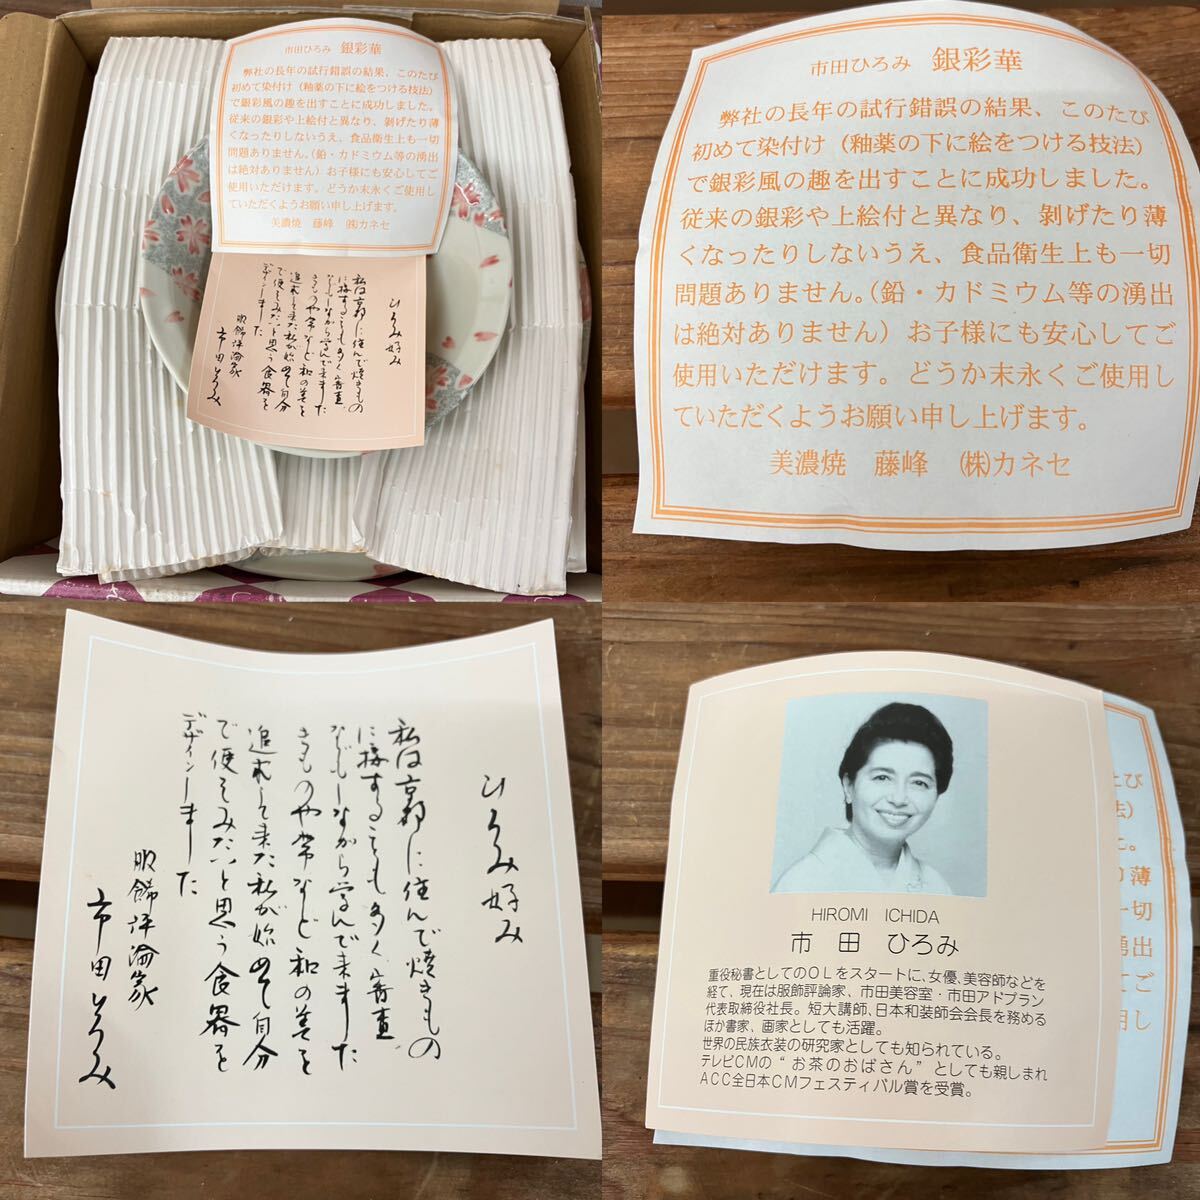 市田ひろみ 銀彩華
弊社の長年の試行錯誤の結果、このたび
初めて染付け（釉薬の下に絵をつける技法）
で銀彩風の趣を出すことに成功しました。
従来の銀彩や上絵付と異なり、剥げたり薄
くなったりしないうえ、食品衛生上も一切
問題ありません。（鉛・カドミウム等の湧出
は絶対ありません）お子様にも安心してご
使用いただけます。どうか末永くご使用し
ていただくようお願い申し上げます。
美濃焼 藤峰 ㈱カネセ
ひろみ好み
私は京都に住んで焼きもの
に接することも多く、審査
などしながら学んで来ました
きものや帯など和の美を
追求して来た私が始めて自分
で使ってみたいと思う食器を
デザインしました
服飾評論家
市田ひろみ
市田ひろみ 銀彩華
弊社の長年の試行錯誤の結果、このたび
初めて染付け（釉薬の下に絵をつける技法）
で銀彩風の趣を出すことに成功しました。
従来の銀彩や上絵付と異なり、剥げたり薄
くなったりしないうえ、食品衛生上も一切
問題ありません。（鉛・カドミウム等の湧出
は絶対ありません）お子様にも安心してご
使用いただけます。どうか末永くご使用し
ていただくようお願い申し上げます。
美濃焼 藤峰 ㈱カネセ
ひろみ好み
私は京都に住んで焼きもの
に接することも多く、審査
などしながら学んで来ました
きものや帯など和の美を
追求して来た私が始めて自分
で使ってみたいと思う食器を
デザインしました
服飾評論家
市田ひろみ
HIROMI ICHIDA
市田 ひろみ
重役秘書としてのOLをスタートに、女優、美容師などを
経て、現在は服飾評論家、市田美容室・市田アドプラン
代表取締役社長。短大講師、日本和装師会会長を務める
ほか書家、画家としても活躍。
世界の民族衣装の研究家としても知られている。
テレビCMの“お茶のおばさん”としても親しまれ
ACC全日本CMフェスティバル賞を受賞。
たび
法）
た。
り薄
一切
湧出
てご
用し